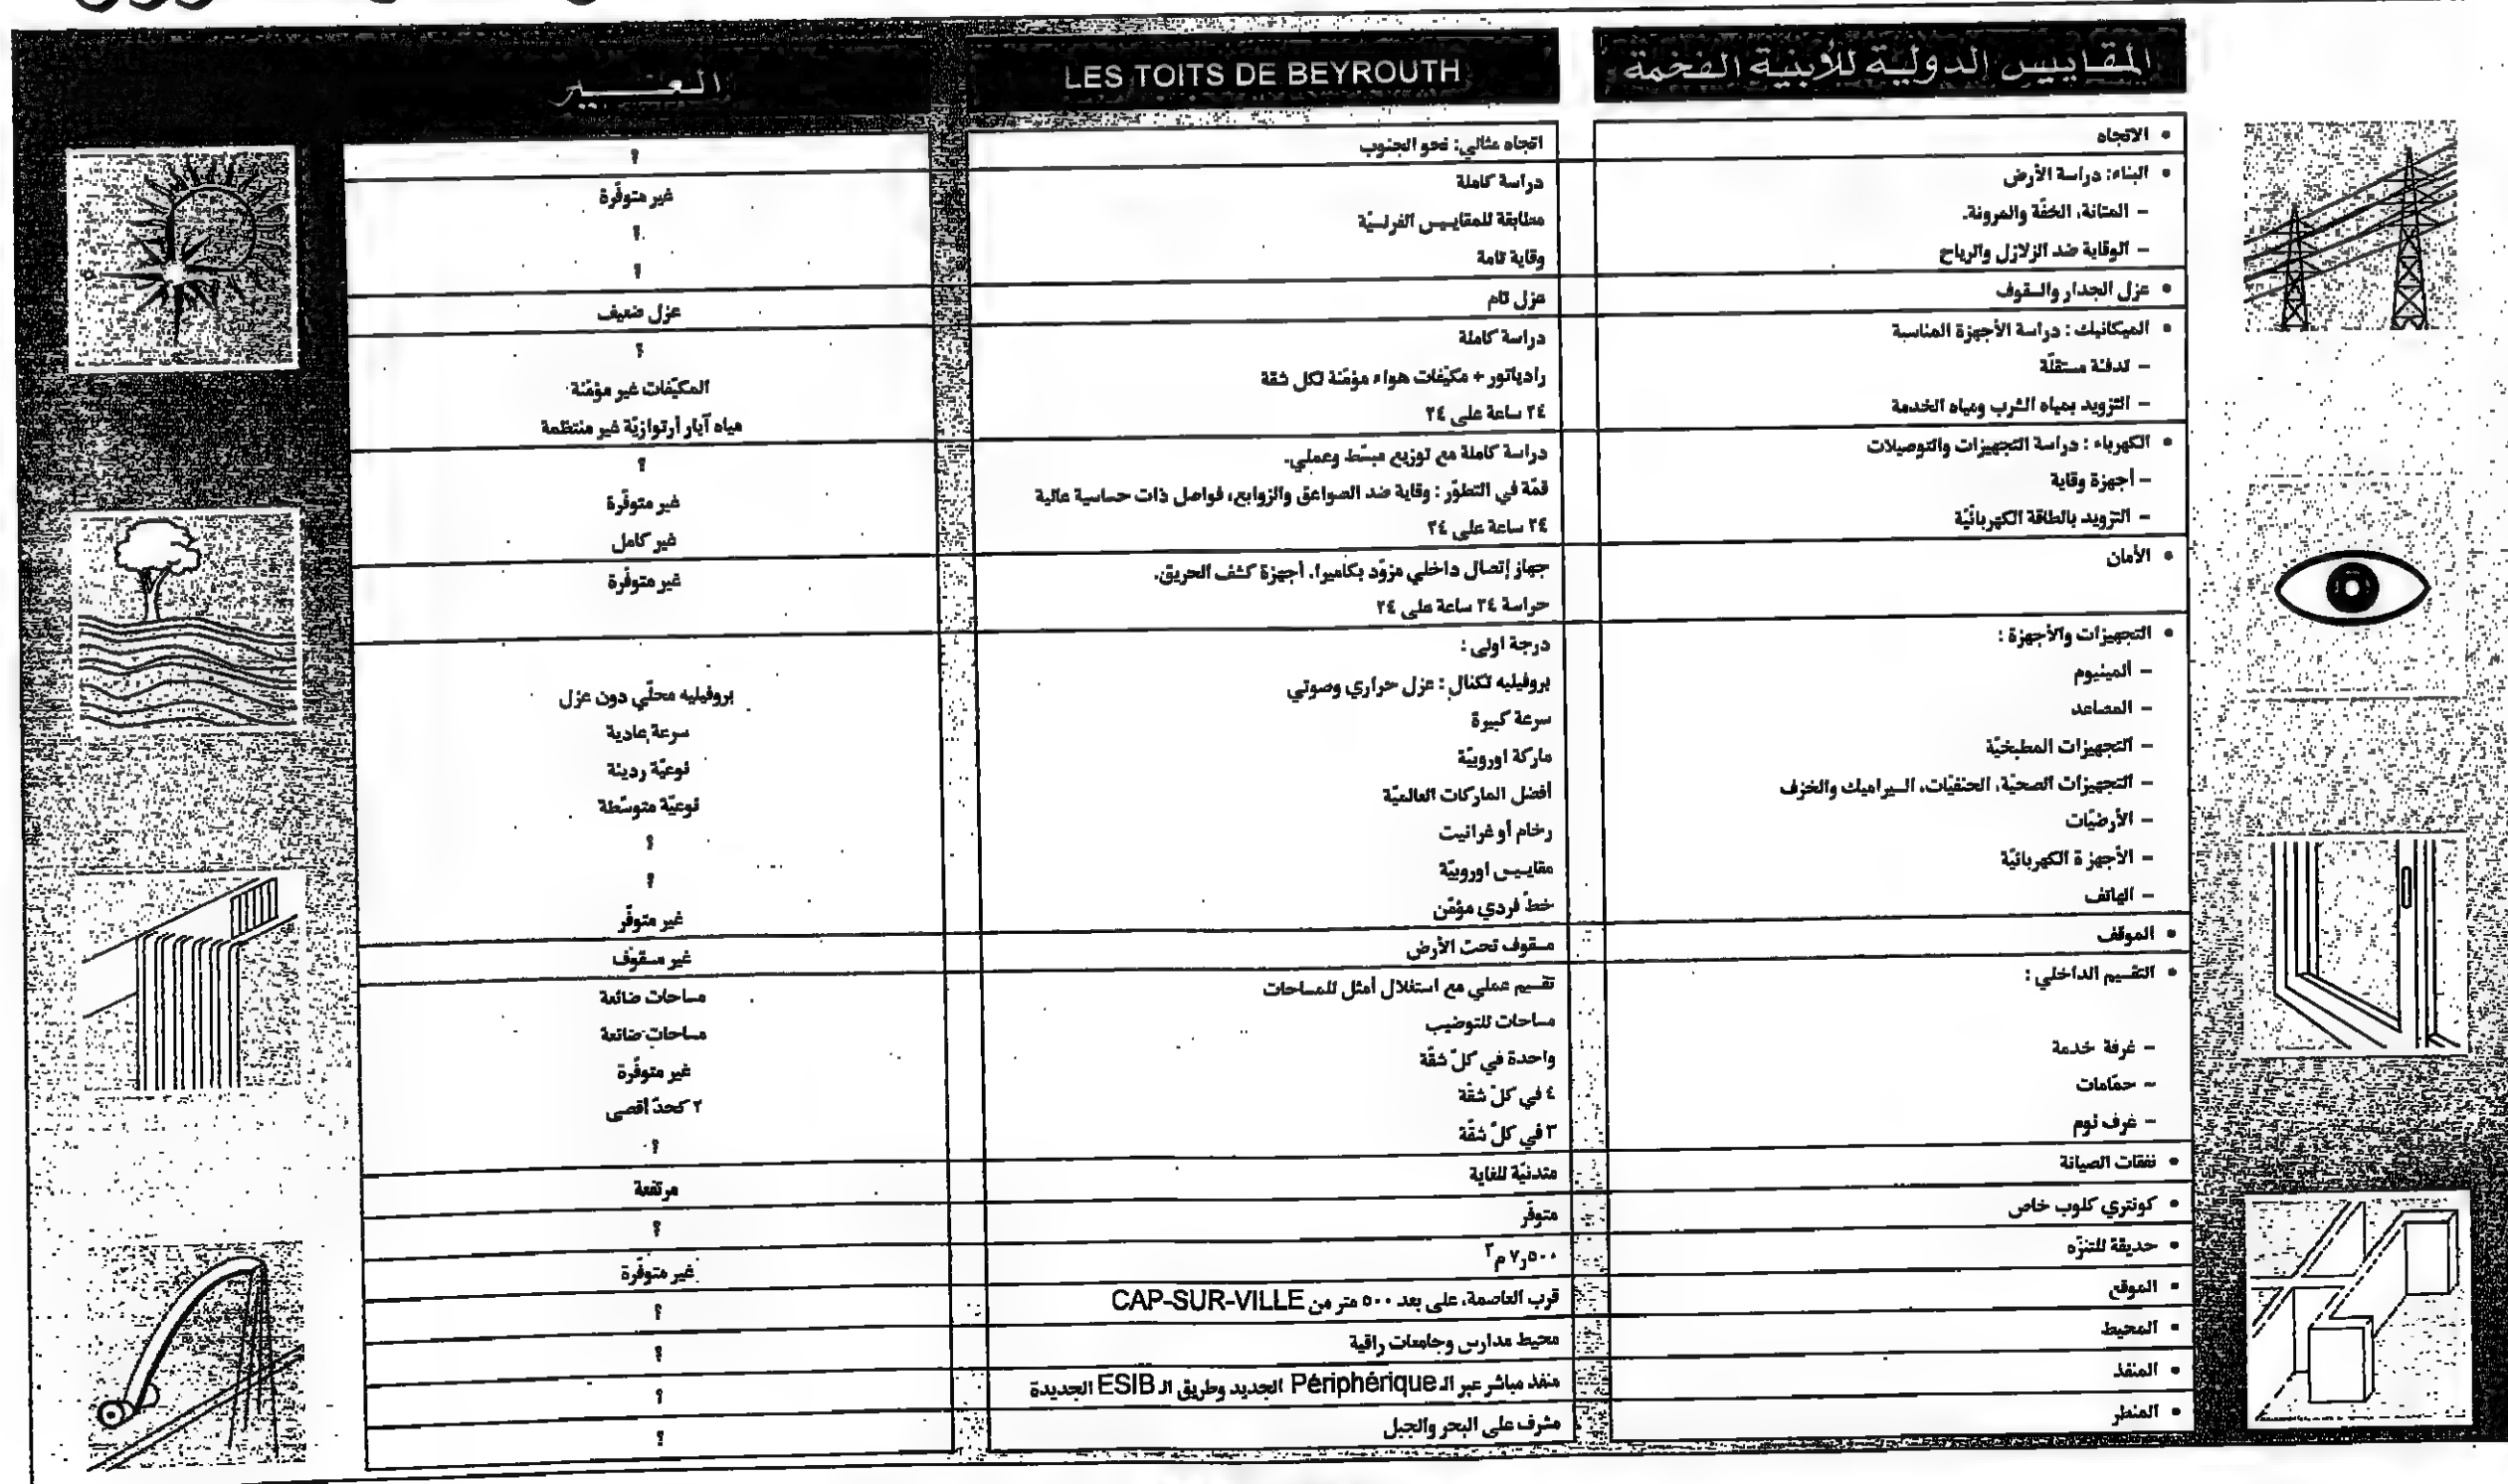 المقاييس الدولية للأبنية الفخمة	LES TOITS DE BEYROUTH	الغير
• الاتجاه	اتجاه مثالي: نحو الجنوب	؟
• البناء: دراسة الأرض	دراسة كاملة	غير متوفّرة
– المتانة، الخفّة والمرونة.	مطابقة للمقاييس الفرنسيّة	؟
– الوقاية ضد الزلازل والرياح	وقاية تامة	؟
• عزل الجدار والسقوف	عزل تام	عزل ضعيف
• الميكانيك : دراسة الأجهزة المناسبة	دراسة كاملة	؟
– تدفئة مستقلّة	رادياتور + مكيّفات هواء مؤمّنة لكل شقة	المكيّفات غير مؤمّنة
– التزويد بمياه الشرب ومياه الخدمة	٢٤ ساعة على ٢٤	مياه آبار أرتوازيّة غير منتظمة
• الكهرباء : دراسة التجهيزات والتوصيلات	دراسة كاملة مع توزيع مبسّط وعملي.	؟
– أجهزة وقاية	قمّة في التطوّر : وقاية ضد الصواعق والزوابع، فواصل ذات حساسية عالية	غير متوفّرة
– التزويد بالطاقة الكهربائيّة	٢٤ ساعة على ٢٤	غير كامل
• الأمان	جهاز إتصال داخلي مزوّد بكاميرا. أجهزة كشف الحريق.	غير متوفّرة
حراسة ٢٤ ساعة على ٢٤
• التجهيزات والأجهزة :	درجة اولى :
– ألمينيوم	بروفيليه تكنال : عزل حراري وصوتي	بروفيليه محلّي دون عزل
– المصاعد	سرعة كبيرة	سرعة عادية
– التجهيزات المطبخيّة	ماركة اوروبيّة	نوعيّة رديئة
– التجهيزات الصحيّة، الحنفيّات، السيراميك والخزف	أفضل الماركات العالميّة	نوعيّة متوسّطة
– الأرضيّات	رخام أو غرانيت	؟
– الأجهزة الكهربائيّة	مقاييس اوروبيّة	؟
– الهاتف	خطّ فردي مؤمّن	غير متوفّر
• الموقف	مسقوف تحت الأرض	غير مسقوف
• التقسيم الداخلي :	تقسيم عملي مع استغلال أمثل للمساحات	مساحات ضائعة
مساحات للتوضيب	مساحات ضائعة
– غرفة خدمة	واحدة في كلّ شقّة	غير متوفّرة
– حمّامات	٤ في كلّ شقّة	٢ كحدّ أقصى
– غرف نوم	٣ في كلّ شقّة	؟
• نفقات الصيانة	متدنيّة للغاية	مرتفعة
• كونتري كلوب خاص	متوفّر	؟
• حديقة للتنزّه	٧,٥٠٠ م٢	غير متوفّرة
• الموقع	قرب العاصمة، على بعد ٥٠٠ متر من CAP-SUR-VILLE	؟
• المحيط	محيط مدارس وجامعات راقية	؟
• المنفذ	منفذ مباشر عبر الـ Périphérique الجديد وطريق الـ ESIB الجديدة	؟
• المنظر	مشرف على البحر والجبل	؟